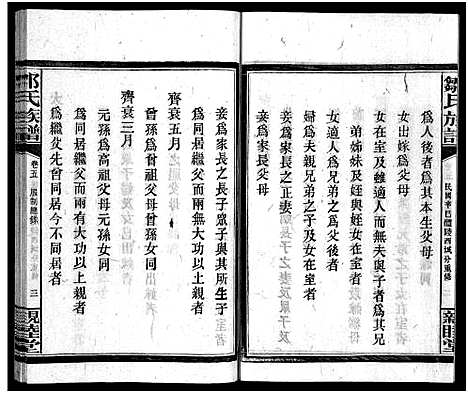 鄒氏族譜
民國辛巳醴陵西城分重修
親睦堂
為人後者為其本生父母
女出嫁為父母
女在室及雖適人而無夫與子者為其兄
弟姊妹及姪與姪女在室者
女適人為兄弟之為父後者
婦為夫親兄弟之子及女在室者
妾為家長之正妻
妾為家長父母
妾為家長之長子眾子與其所生子
為同居繼父而兩無大功以上親者
齊衰五月
曾孫為曾祖父母曾孫女同
齊衰三月
元孫為高祖父母元孫女同
為同居繼父而兩有大功以上親者
為繼父先曾同居今不同居者
鄒氏族譜
卷五
服制總錄
三
親睦堂